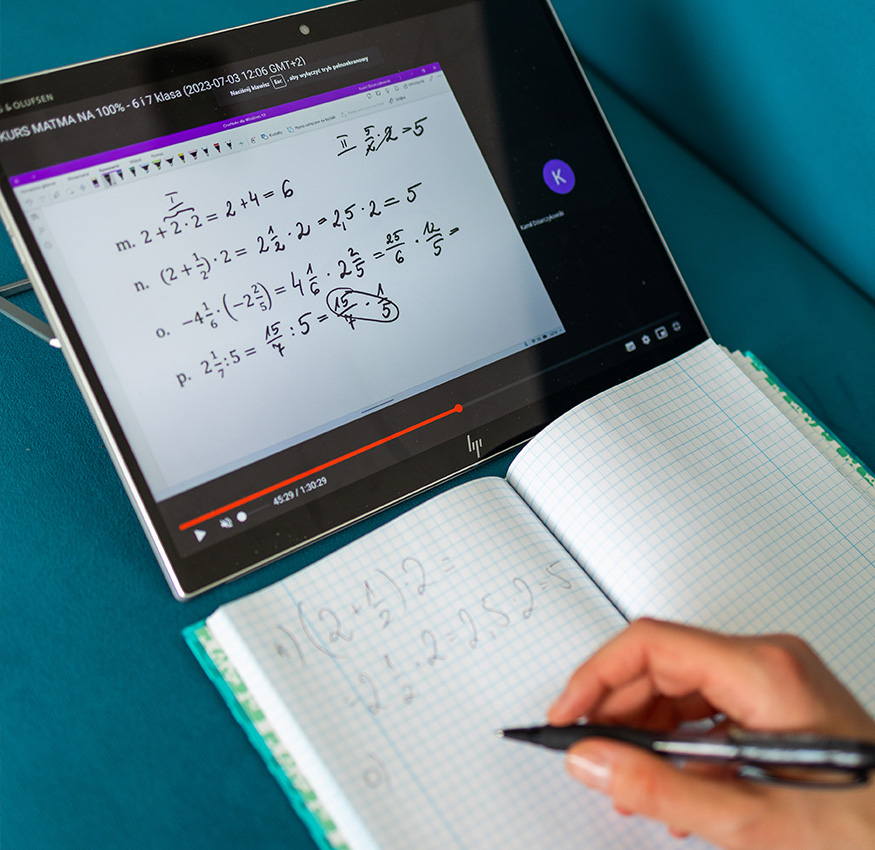 & OLUFSEN
KURS MATMA NA 100% - 6 i 7 klasa (2023-07-03 12:06 GMT+2)
Naciśnij klawisz Esc , aby wyłączyć tryb pełnoekranowy
OneNote dla Windows 10
II 5/2 · 2 = 5
I
m. 2 + 2 · 2 = 2 + 4 = 6
n. (2 + 1/2) · 2 = 2 1/2 · 2 = 2,5 · 2 = 5
o. -4 1/6 · (-2 2/5) = 4 1/6 · 2 2/5 = 25/6 · 12/5 =
p. 2 1/7 : 5 = 15/7 : 5 = 15/7 · 1/5
K
45:29 / 1:30:29
hp
n) (2 + 1/2) · 2 =
= 2 1/2 · 2 = 2,5 · 2 = 5
o)